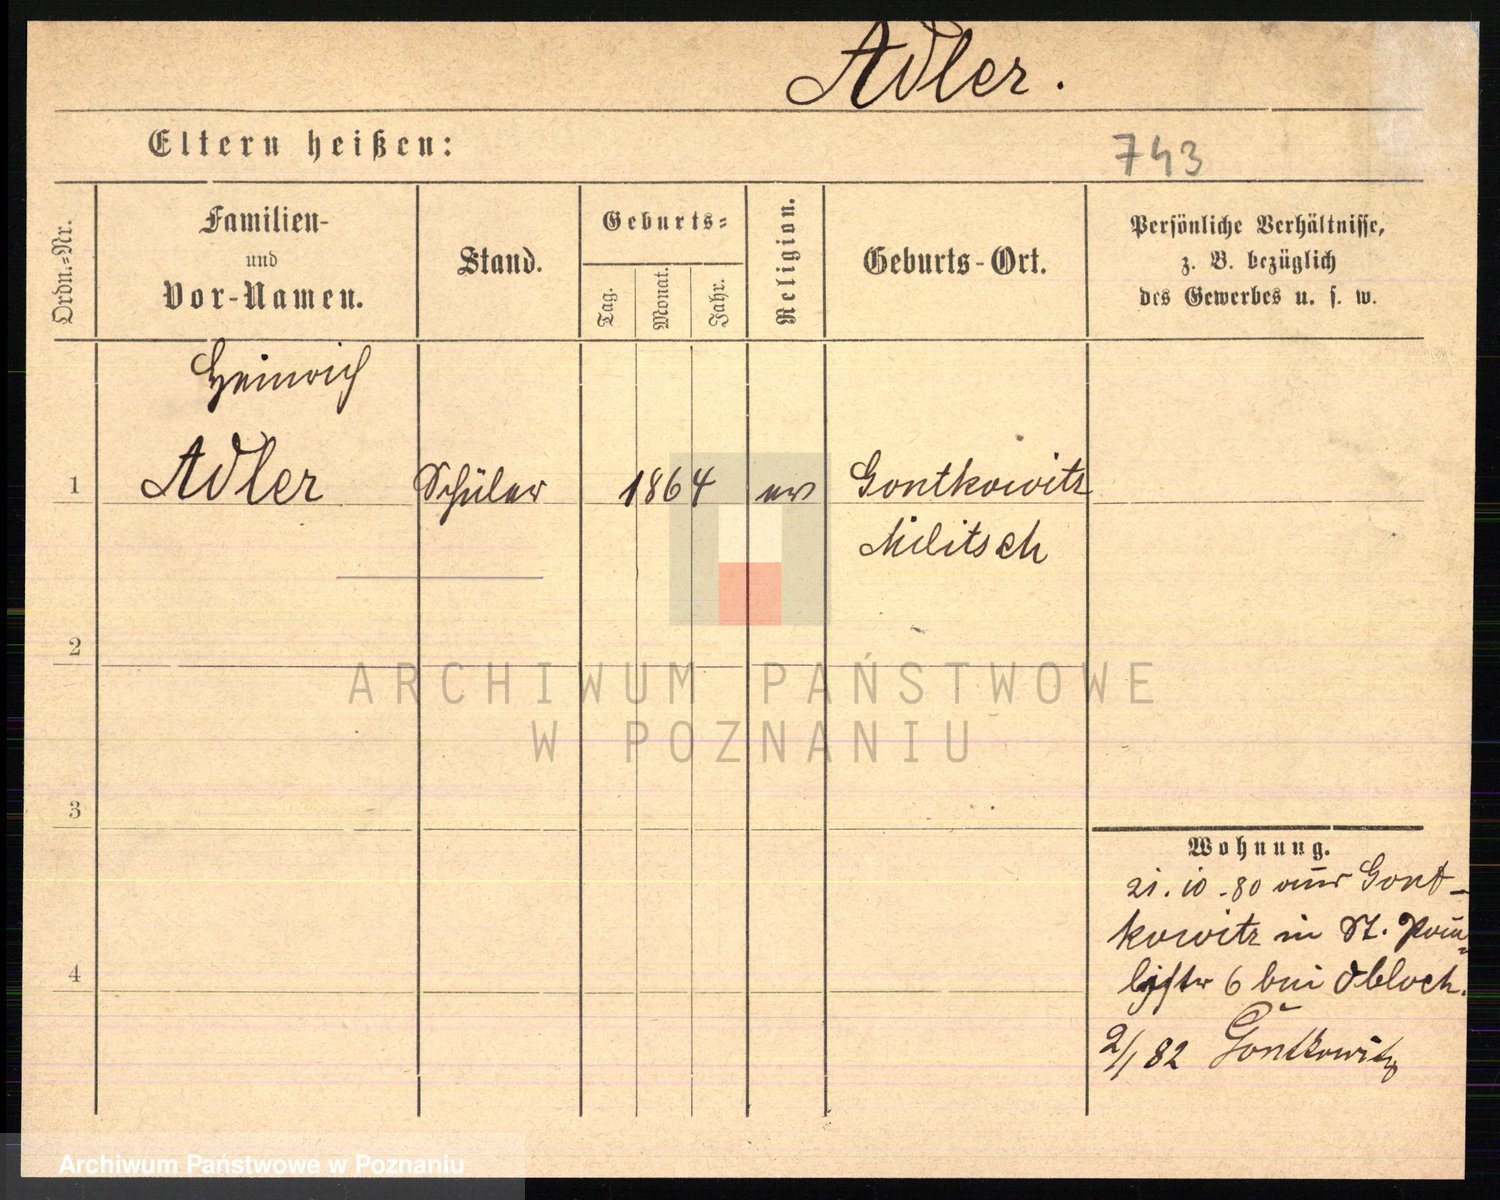 Adler.
Eltern heißen:
743
Ordn.-Nr.
Familien-
und
Vor-Namen.
Stand.
Geburts-
Tag.
Monat.
Jahr.
Religion.
Geburts-Ort.
Persönliche Verhältnisse,
z. B. bezüglich
des Gewerbes u. s. w.
Heinrich
1 Adler Schüler 1864 ev Gontkowitz
Militsch
2
ARCHIWUM PAŃSTWOWE
W POZNANIU
3
Wohnung.
21.10.80 aus Gont-
kowitz in St.
4
6 bei Obloch.
2/1 82 Gontkowitz
Archiwum Państwowe w Poznaniu